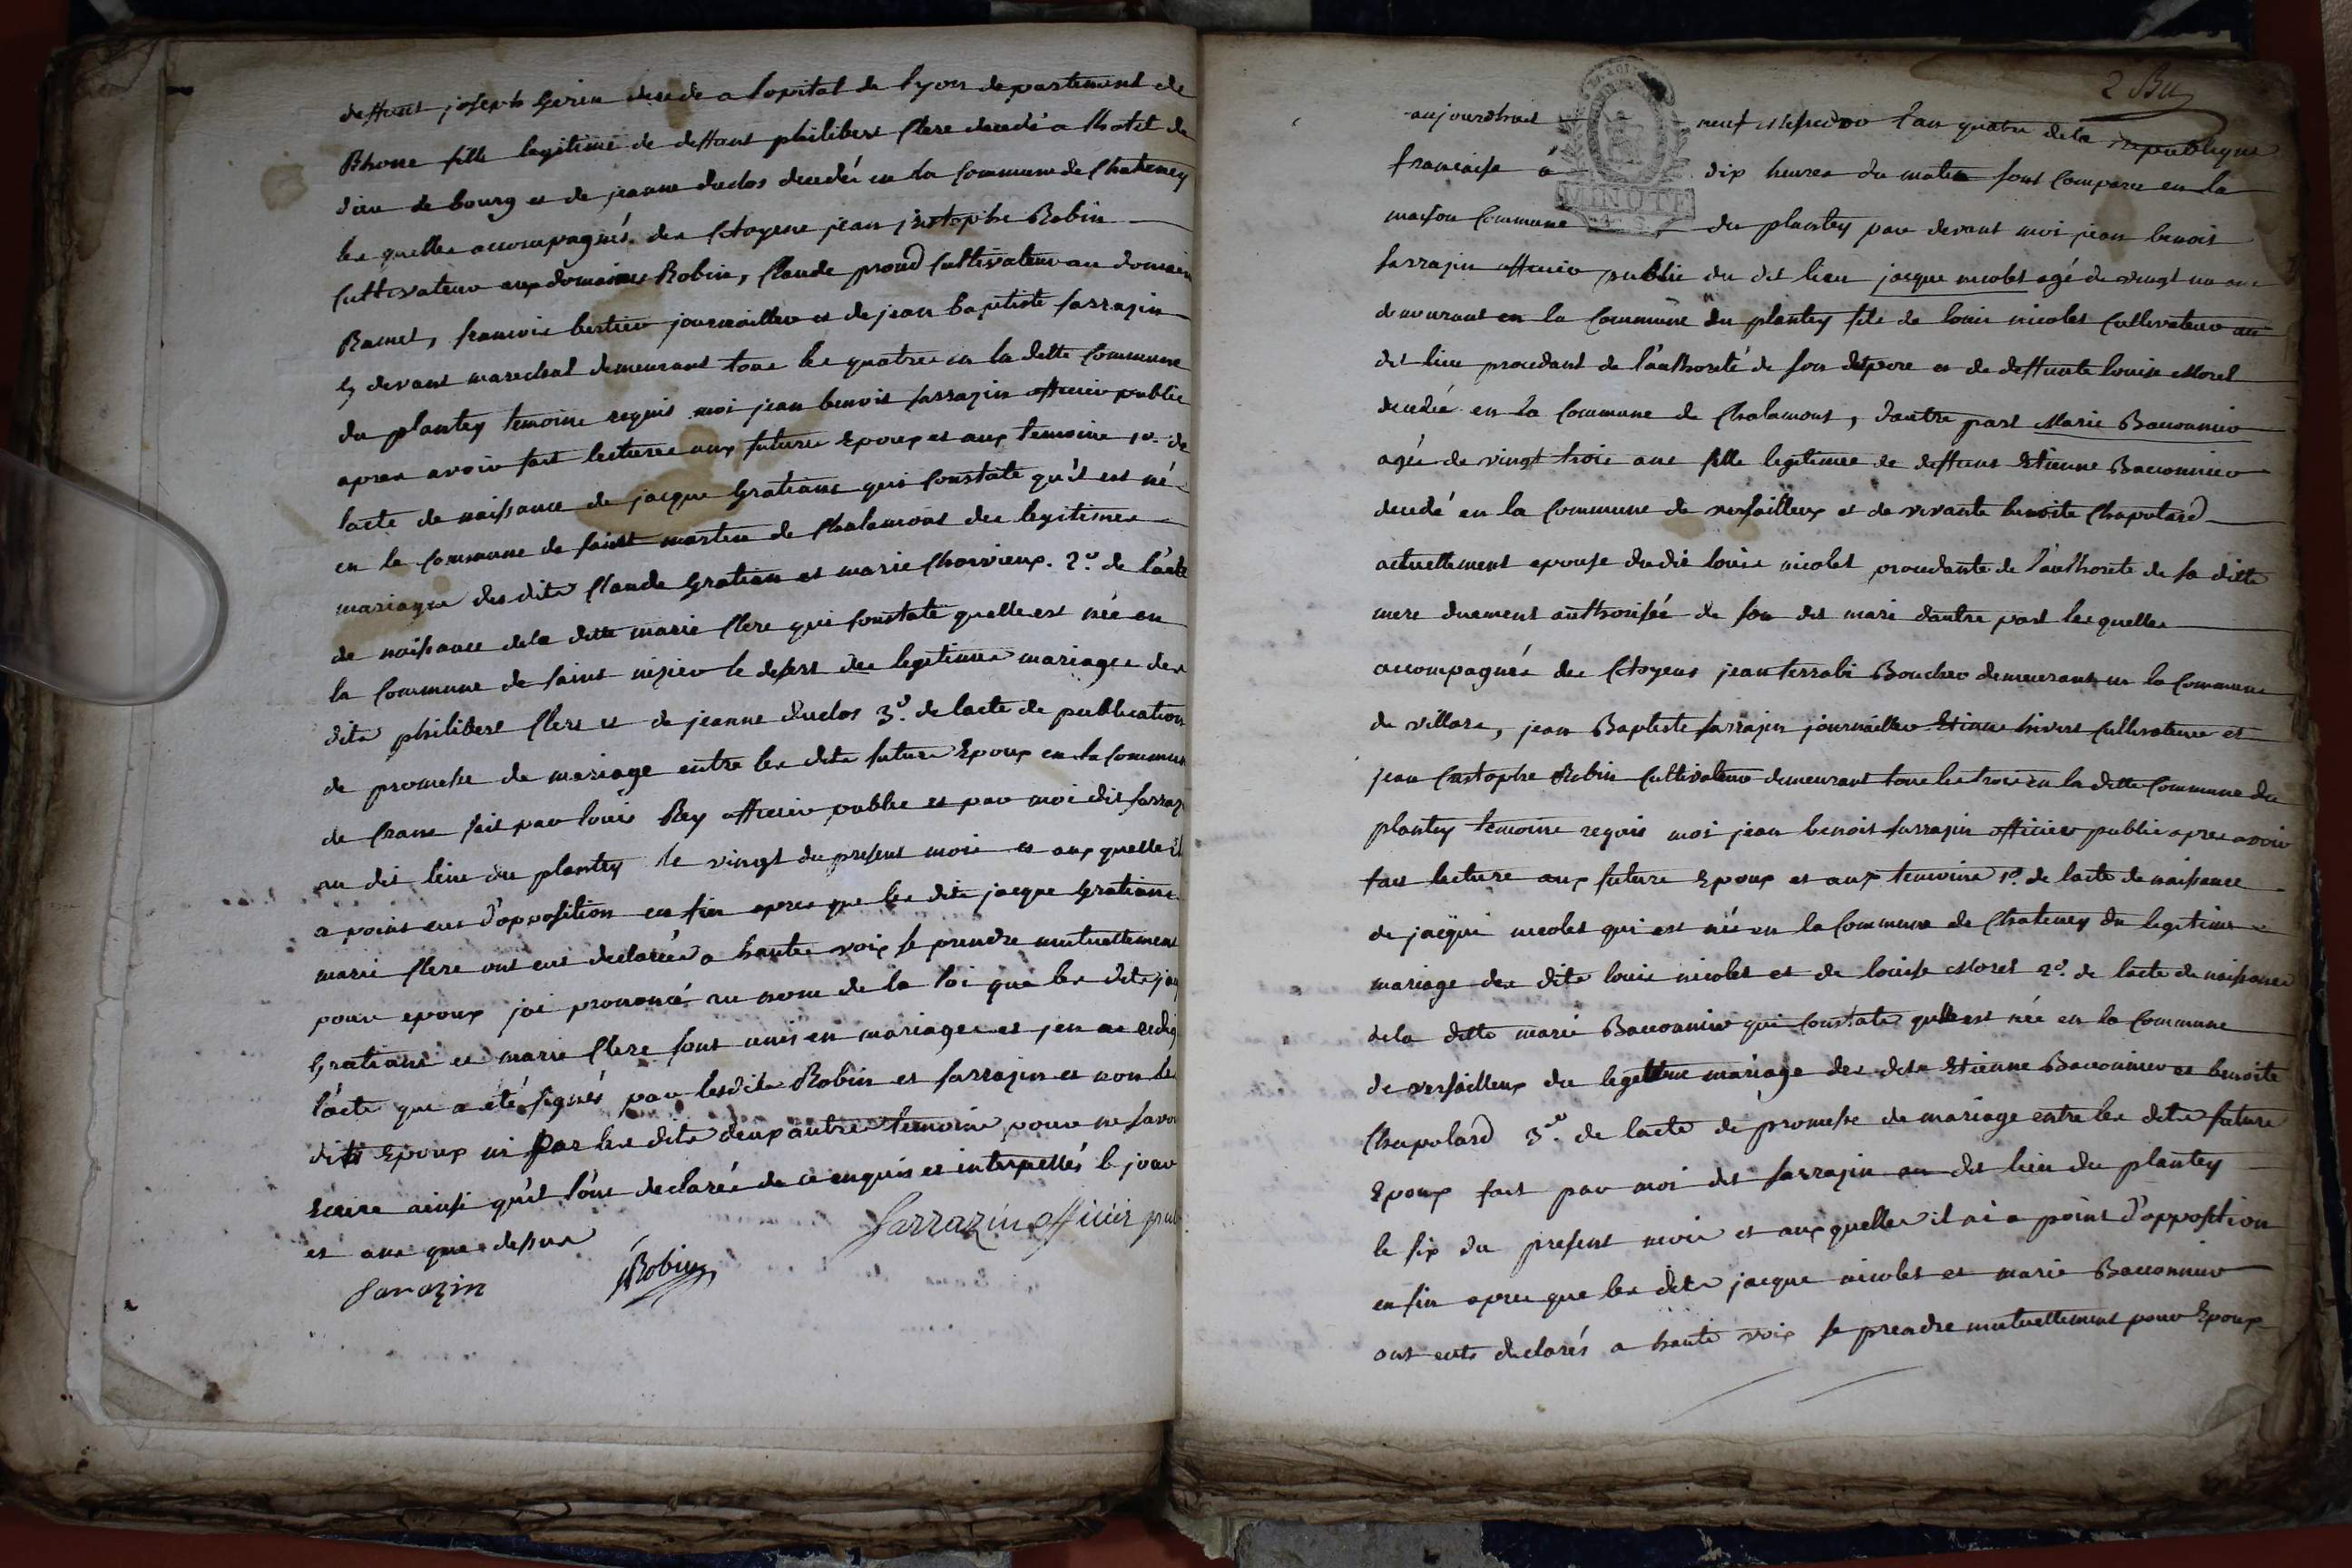 deffunt joseph Gerin decede a lopital de lyon departement de
Rhone fille legitime de deffunt philibert Clere decedé a lhotel de
dieu de bourg et de jeanne duclos decedée en la Commune de Chateney
les quelles accompagnés des Citoyens jean jristophe Robin
Cultivateur aux domaines Robin, Claude proud Cultivateur au domaine
Ramet, francois bertier journaillier et de jean baptiste sarrazin
cy devant marechal demeurant tous les quatres en la ditte Commune
du plantey temoins requis moi jean benois sarrazin officier public
apres avoir fait lectures aux futurs Epoux et aux temoins 1º. de
lacte de naissance de jacque Gratians qui Constate qu'il est né
en la Commune de saint martin de Chalamont des legitimes
mariages desdits Claude Gratian et marie Chorvieux. 2º. de l'acte
de naissance dela ditte marie Clere qui Constate quelle est née en
la Commune de saint nizier le desert des legitimes mariages des
dits philibert Clere et de jeanne duclos 3º. de lacte de publication
de promesse de mariage entre les dits futurs Epoux en la Commun
de Crans fait par louis Rey officier public et par moi dit sarraz
au dit lieu du plantey le vingt du present mois et aux quelles il
a point eus d'opposition en fin apres que les dits jacque Gratians
marie Clere ont eus declarées a hautes voix se prendre mutuellement
pour epoux jai prononcé au nom de la loi que les dits jaq
Gratians et marie Clere sont unis en mariages et jen ai redig
l'acte que a été signés par lesdits Robin et sarrazin et non les
dits Epoux ni par les dits deux autres temoins pour ne savoi
Ecrire ainsi qu'il l'ont declarés de ce enquis et interpellés le jour
et ans que dessus
Sarrazin officier pub
Sarozin Robin
2 Bu
aujourdhuit neuf messidor l'an quatre dela republique
francaise à dix heures du matin sont Comparu en la
MINUTE
maison Commune du plantey par devant moi jean benois
sarrazin officier public du dit lieu jacque nicolet agé de vingt un ans
demeurant en la Commune du plantey fils de louis nicolet Cultivateur au
dit lieu procedant de l'authorité de son dit pere et de deffunte louise Morel
decedée en la Commune de Chalamont, d'autre part Marie Bauonnier
agée de vingt trois ans fille legitimee de deffunt Etienne Bauonnier
decedé en la Commune de versailleux et de vivante benoite Chapolard
actuellement epouse dudit louis nicolet procedante de l'authorité de sa ditte
mere duement authorisée de son dit mari dautre part les quelles
accompagnés des Citoyens jean terrabi Boucher demeurant en la Commune
de villars, jean Baptiste sarrazin journaillier Etienne hivert Cultivateur et
jean Cristophe Robin Cultivateur demeurant tous les trois en la ditte Commune du
plantey temoins requis moi jean benois sarrazin officier public apres avoir
fait lecture aux futurs Epoux et aux temoins 1º. de lacte de naissance
de jacque nicolet qui est né en la Commune de Chateney du legitime
mariage des dits louis nicolet et de louise Morel 2º. de lacte de naissance
dela ditte marie Bauonnier qui Constate quelle est née en la Commune
de versailleux du legitime mariage des dits Etienne Bauonnier et benoite
Chapolard 3º. de lacte de promesse de mariage entre les dits futurs
Epoux fait par moi dit sarrazin au dit lieu du plantey
le six du present mois et aux quelles il ni a point d'opposition
en fin apres que les dits jacque nicolet et marie Bauonnier
ont euts declarés a haute voix se prendre mutuellement pour Epoux